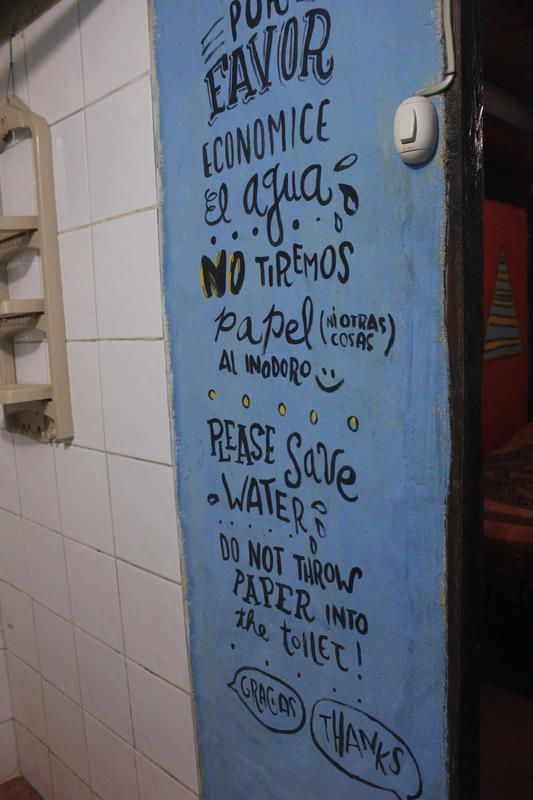 POR
FAVOR
ECONOMICE
El agua
NO TIREMOS
papel (NI OTRAS
COSAS)
AL INODORO
PLEASE Save
WATER
DO NOT THROW
PAPER INTO
the toilet!
GRACIAS
THANKS